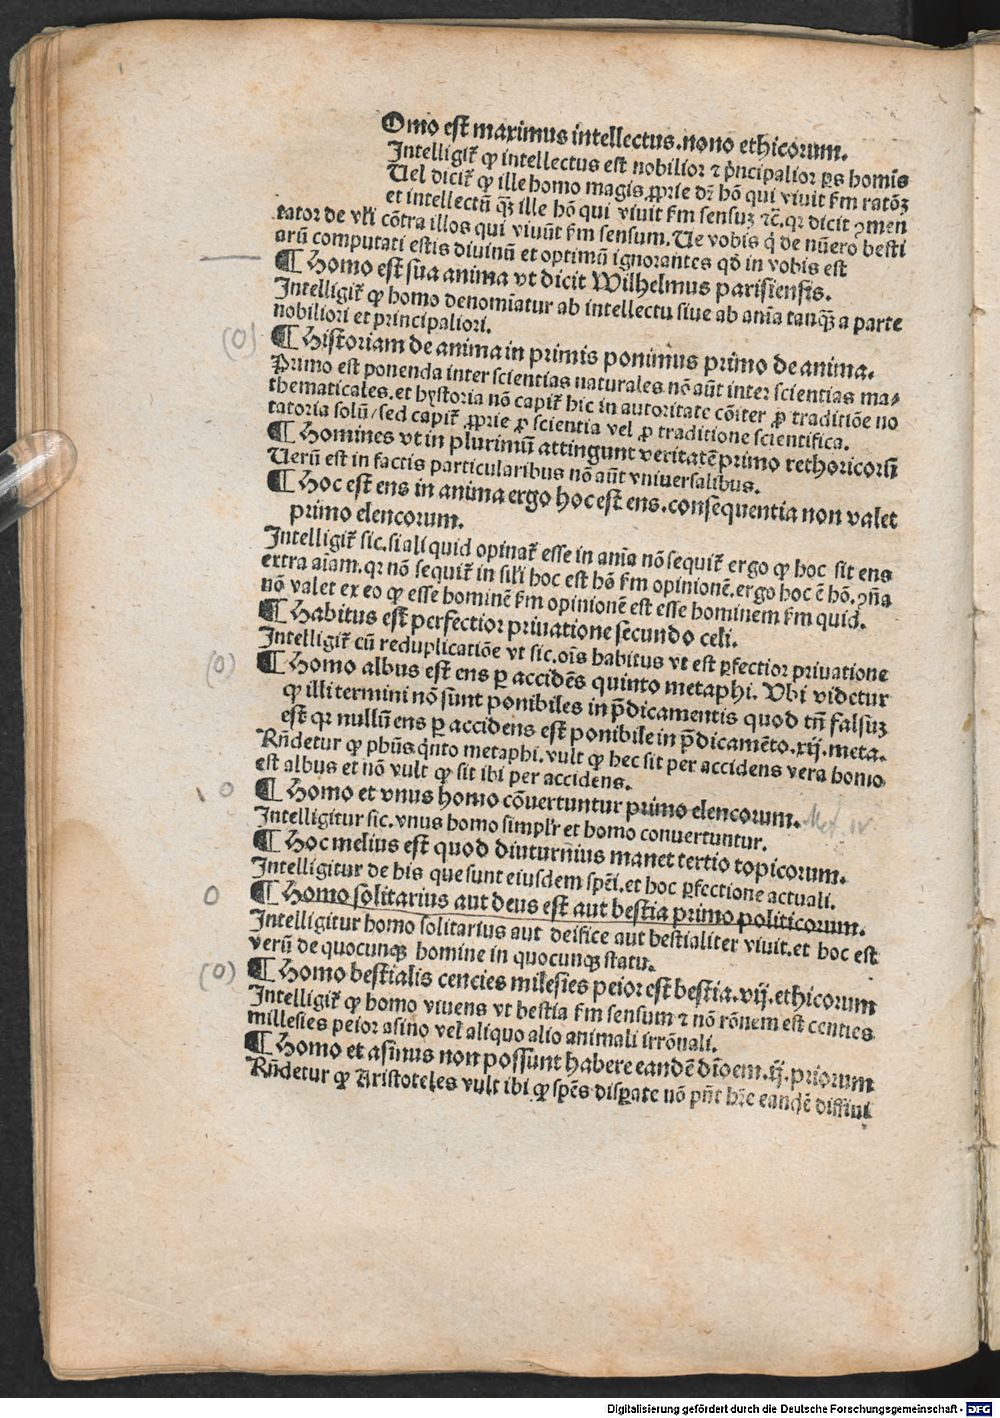 Omo est maximus intellectus.nono ethicorum.
Intelligit̃ ꝙ intellectus est nobilior ⁊ p̃ncipalior ꝑs homĩs
Uel dicit̃ ꝙ ille homo magis ꝓprie dr̃ hõ qui viuit ẜm ratõꝫ
et intellectũ qꝫ̃ ille hõ qui viuit ẜm sensuꝫ ⁊c̃.qꝛ dicit ꝯmen
tator de vl̃i cõtra illos qui viuũt ẜm sensum.Ue vobis q̃ de nũero besti
arũ computati estis diuinũ et optimũ ignorantes qd̃ in vobis est
¶ Homo est sua anima vt dicit Wilhelmus parisiensis.
Intelligit̃ ꝙ homo denomĩatur ab intellectu siue ab aĩa tanqꝫ̃ a parte
nobiliori et principaliori.
(0) ¶ Historiam de anima in primis ponimus primo de anima.
Primo est ponenda inter scientias naturales nõ aũt inter scientias ma⸗
thematicales.et hystoria nõ capit̃ hic in autoritate cõiter ꝓ traditiõe no
tatoria solũ/sed capit̃ ꝓprie ꝓ scientia vel ꝓ traditione scientifica.
¶ Homines vt in plurimũ attingunt veritatẽ primo rethoricorũ
Uerũ est in factis particularibus nõ aũt vniuersalibus.
¶ Hoc est ens in anima ergo hoc est ens.consequentia non valet
primo elencorum.
Intelligit̃ sic.si aliquid opinat̃ esse in aĩa nõ sequit̃ ergo ꝙ hoc sit ens
extra aĩam.qꝛ nõ sequit̃ in sil̃i hoc est hõ ẜm opinionẽ.ergo hoc ẽ hõ.ꝯña
nõ valet ex eo ꝙ esse hominẽ ẜm opinionẽ est esse hominem ẜm quid.
¶ Habitus est perfectior priuatione secundo celi.
Intelligit̃ cũ reduplicatiõe vt sic.oĩs habitus vt est ꝑfectior priuatione
(0) ¶ Homo albus est ens ꝑ accidẽs quinto metaphi. Ubi videtur
ꝙ illi termini nõ sunt ponibiles in p̃dicamentis quod tñ falsuꝫ
est qꝛ nullũ ens ꝑ accidens est ponibile in p̃dicamẽto.xij.meta.
Rñdetur ꝙ phũs q̃nto metaphi.vult ꝙ hec sit per accidens vera homo
est albus et nõ vult ꝙ sit ibi per accidens.
0 ¶ Homo et vnus homo cõuertuntur primo elencorum. Met. IV
Intelligitur sic.vnus homo simpl̃r et homo conuertuntur.
¶ Hoc melius est quod diuturnius manet tertio topicorum.
Intelligitur de his que sunt eiusdem spẽi.et hoc ꝑfectione actuali.
0 ¶ Homo solitarius aut deus est aut bestia primo politicorum.
Intelligitur homo solitarius aut deifice aut bestialiter viuit.et hoc est
verũ de quocunqꝫ homine in quocunqꝫ statu.
(0) ¶ Homo bestialis cencies milesies peior est bestia.vij.ethicorum
Intelligit̃ ꝙ homo viuens vt bestia ẜm sensum ⁊ nõ rõnem est centies
millesies peior asino vel aliquo alio animali irrõnali.
¶ Homo et asinus non possunt habere eandẽ diffinitõem.ij.priorum
Rñdetur ꝙ Aristoteles vult ibi ꝙ spẽs disꝑate nõ pñt hr̃e eandẽ diffini
Digitalisierung gefördert durch die Deutsche Forschungsgemeinschaft - DFG